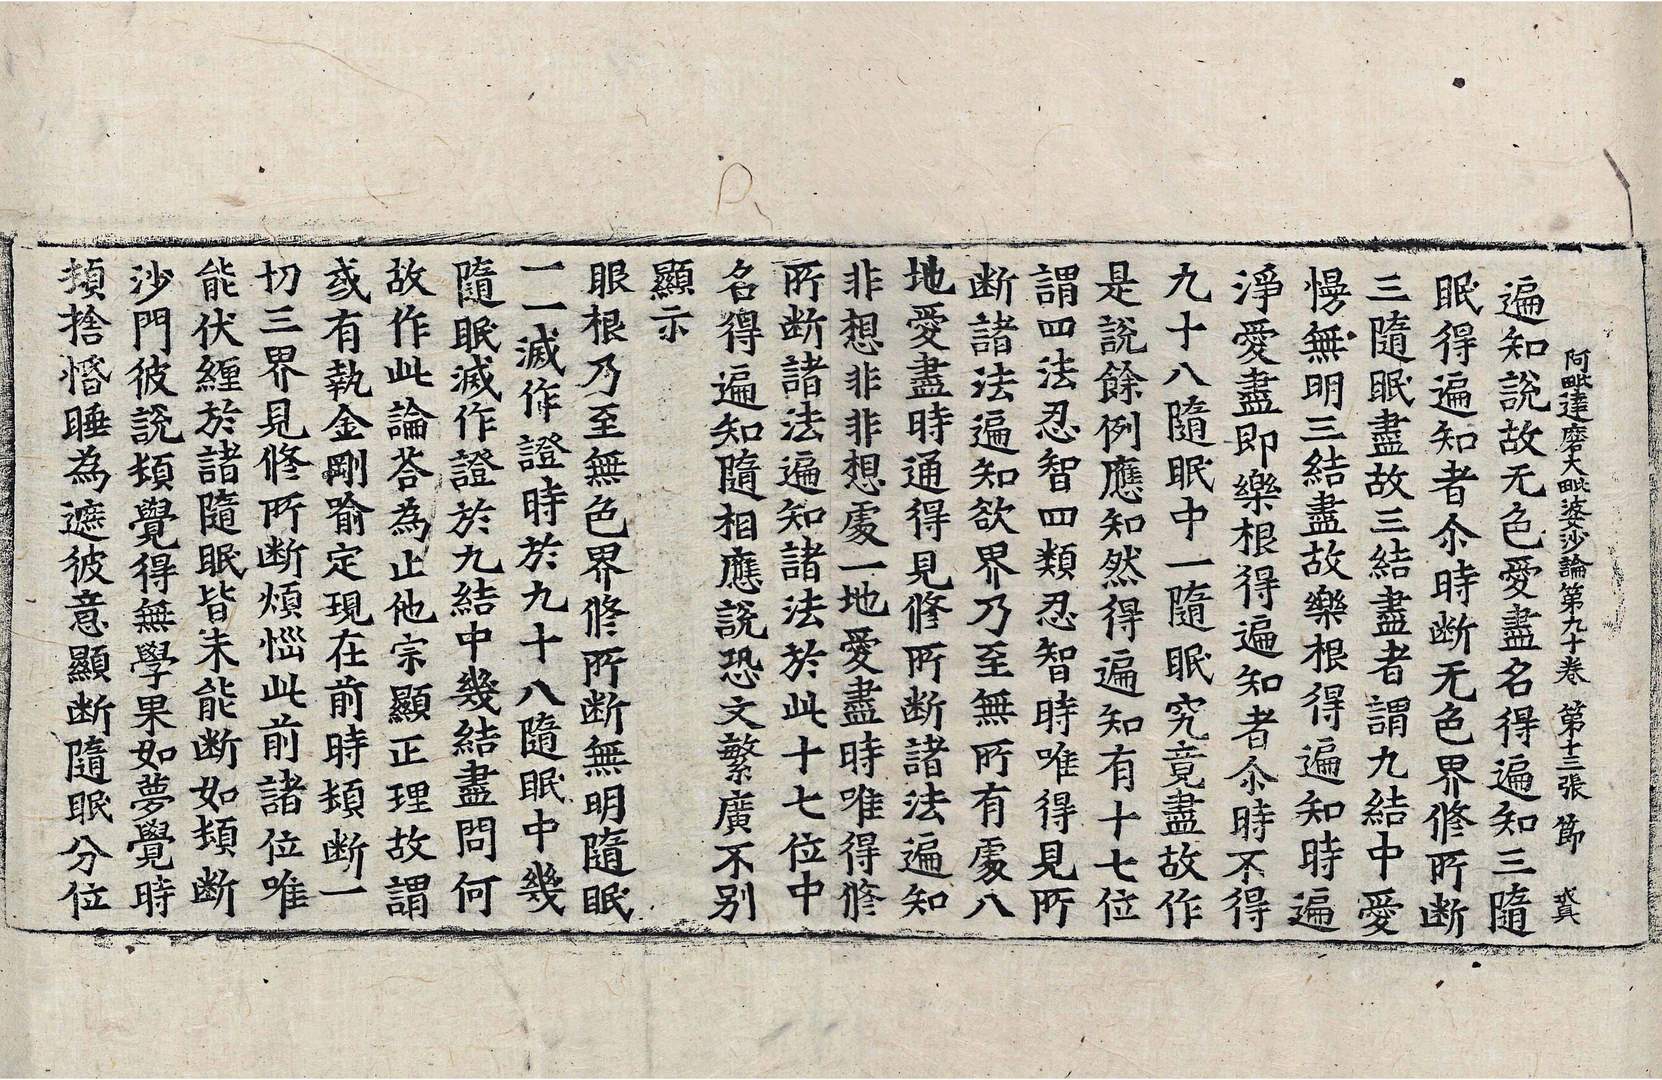 阿毗達磨大毗婆沙論第九十卷　第十三張　節　貳
遍知說故无色愛盡名得遍知三隨
眠得遍知者尒時断无色界修所断
三隨眠盡故三結盡者謂九結中愛
慢無明三結盡故樂根得遍知時遍
淨愛盡即樂根得遍知者尒時不得
九十八隨眠中一隨眠究竟盡故作
是說餘例應知然得遍知有十七位
謂四法忍智四類忍智時唯得見所
断諸法遍知欲界乃至無所有處八
地愛盡時通得見修所断諸法遍知
非想非非想處一地愛盡時唯得修
所断諸法遍知諸法於此十七位中
名得遍知隨相應說恐文繁廣不别
顯示
眼根乃至無色界修所断無明隨眠
一一滅作證時於九十八隨眠中幾
隨眠滅作證於九結中幾結盡問何
故作此論荅為止他宗顯正理故謂
或有執金剛喻定現在前時頓断一
切三界見修所断煩惱此前諸位唯
能伏纏於諸隨眠皆未能断如頓断
沙門彼說頓覺得無學果如夢覺時
頓捨惛睡為遮彼意顯断隨眠分位